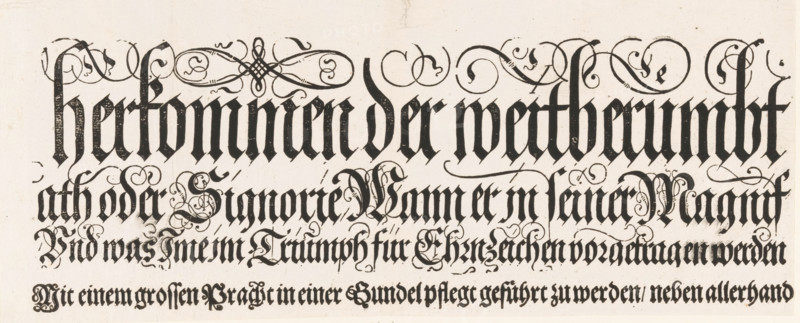 herkommen der weitberumbt
ath oder Signorie Wann er in seiner Magnif
Vnd was Ime im Triumph für EhrnZeichen vorgetragen werden
Mit einem grossen Pracht in einer Gundel pflegt geführt zu werden/ neben allerhand